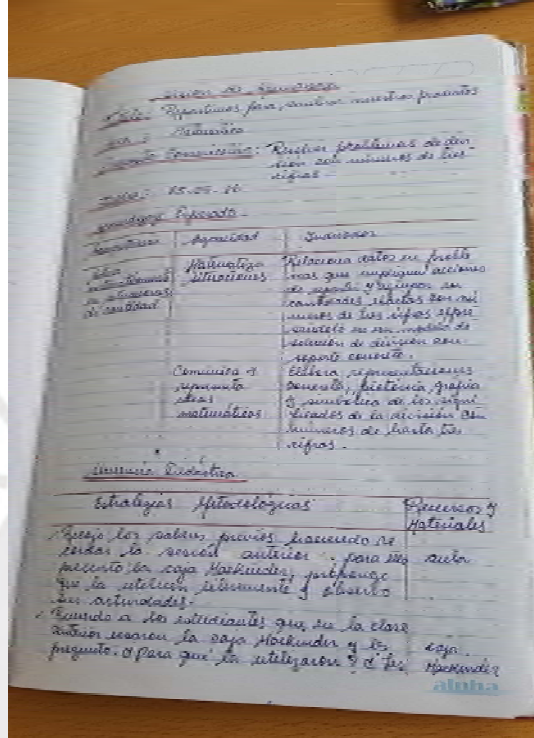 Sesión de Aprendizaje
Título: Repartimos para sembrar nuestros productos
Área : Matemática
Propósito : Resolver problemas de divi-
sión con números de tres
cifras.
Fecha: 05-05-16
Aprendizaje Esperado.
Competencia Capacidad Indicador
Actúa Matematiza Relaciona datos en proble
matemáticamente situaciones mas que impliquen acciones
en situaciones de repartir y agrupar en
de cantidad cantidades exactas con nú
meros de tres cifras expre
sándolo en un modelo de
solución de división con
soporte concreto.
Comunica y Elabora representaciones
representa concreta, pictórica, gráfica
ideas y simbólica de los signi
matemáticas ficados de la división con
números de hasta tres
cifras.
Secuencia Didáctica
Estrategias Metodológicas Recursos y
Materiales
Recojo los saberes previos haciendo re
cordar la sesión anterior. para ello
presento la caja Mackinder, propongo
que la utilicen libremente y observo
sus actividades.
Recuerdo a los estudiantes que en la clase
anterior usaron la caja Mackinder y les caja
pregunto. ¿Para qué la utilizaron? ¿ Mackinder
alpha